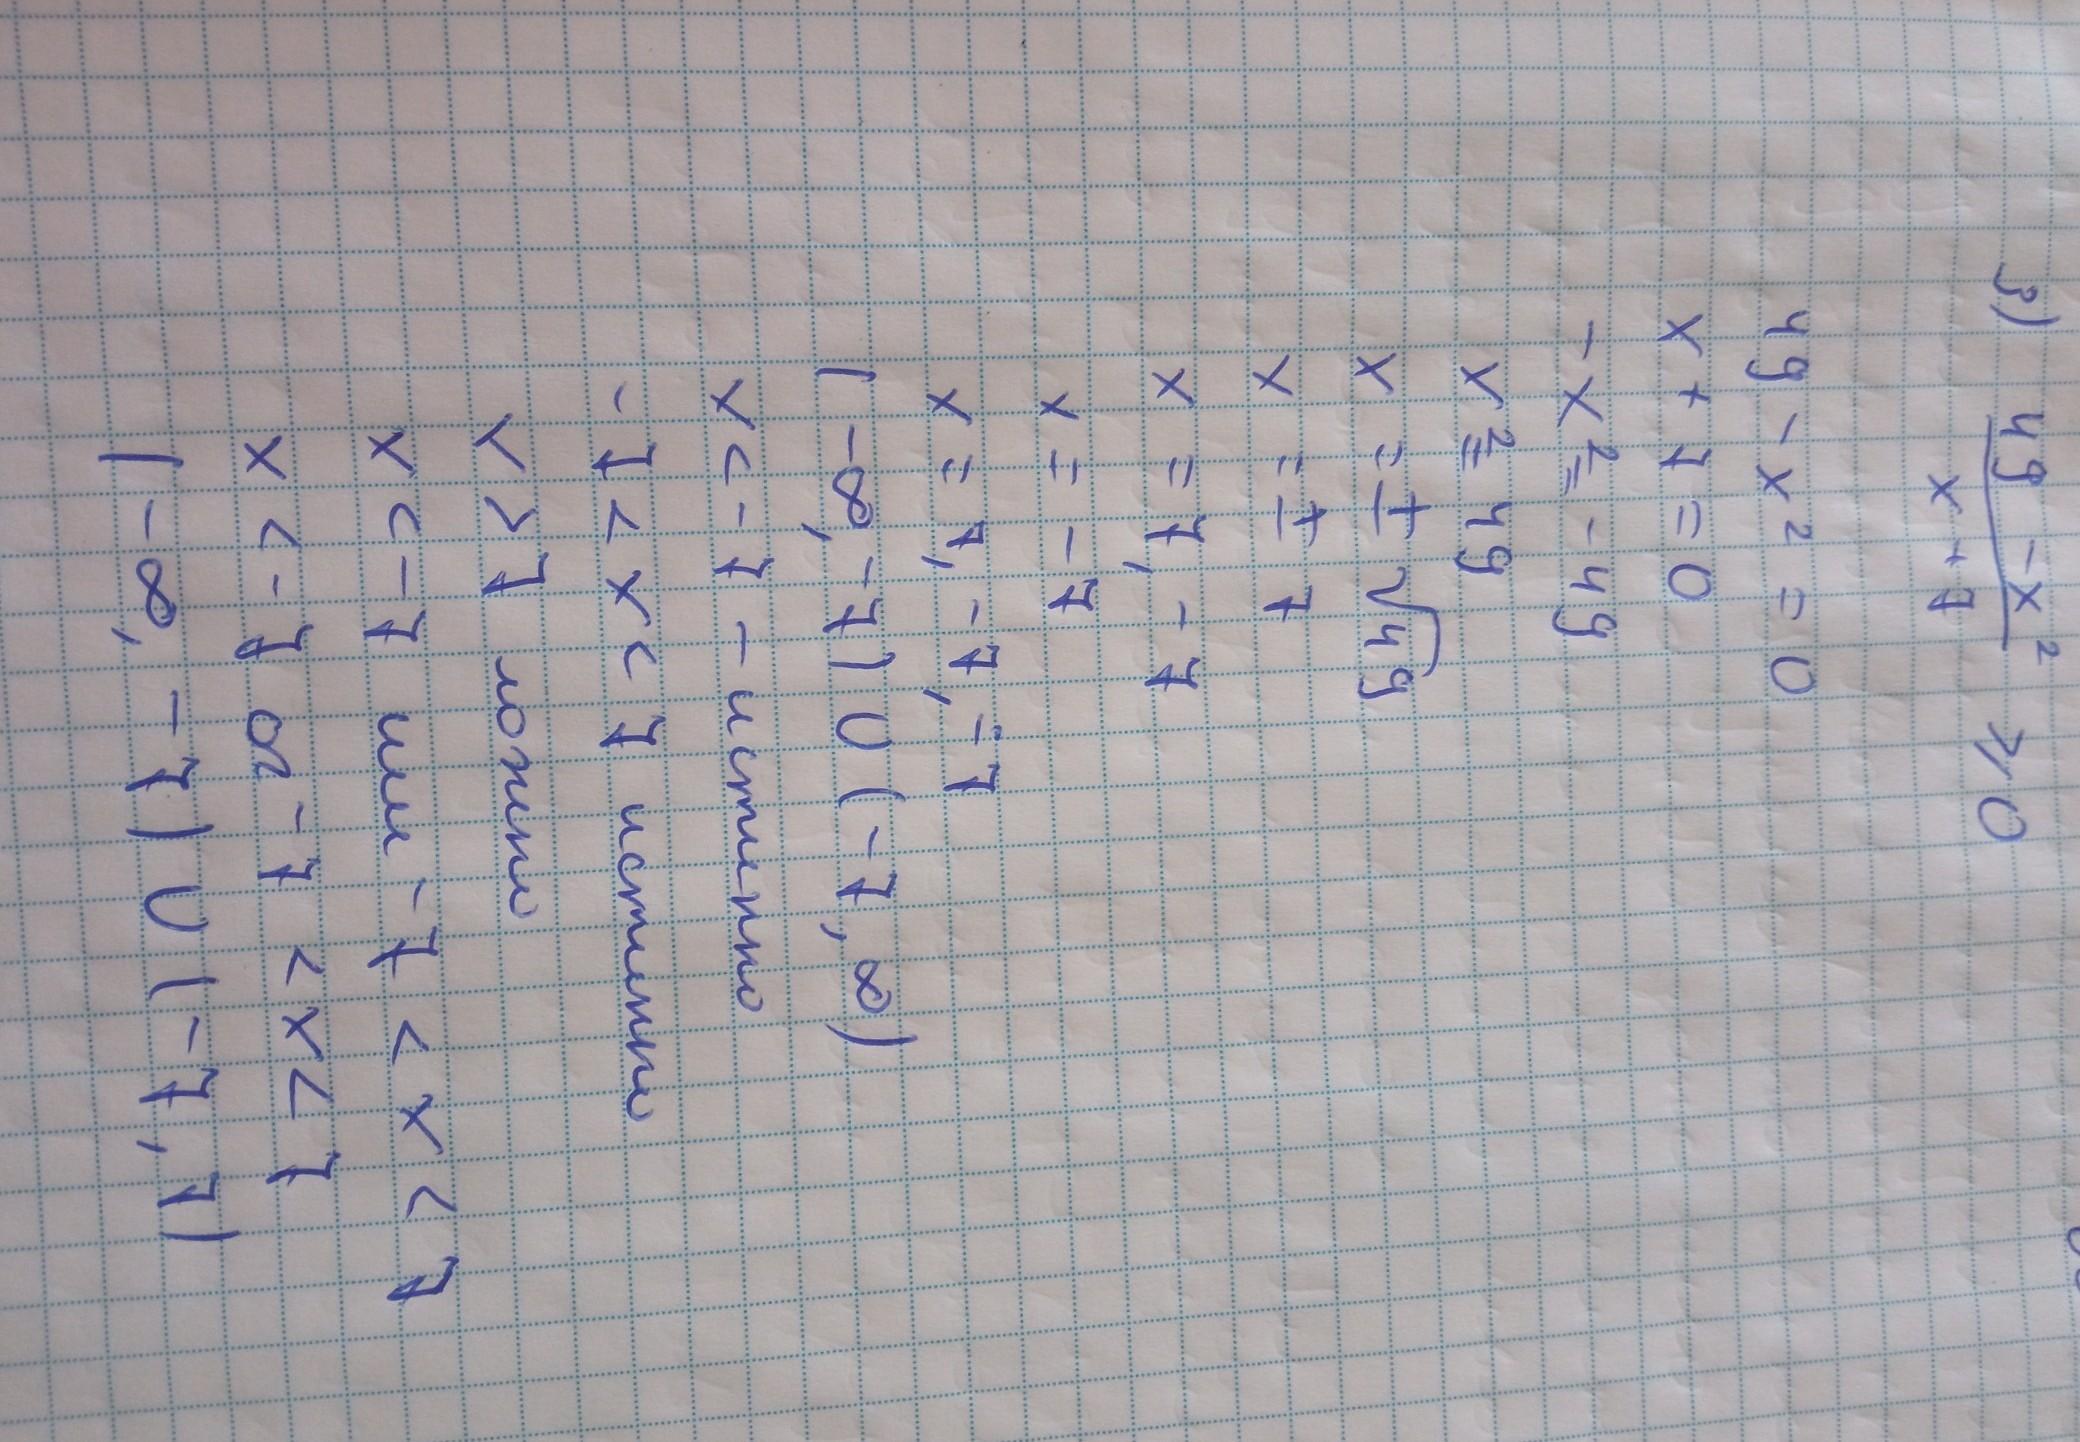 3) 49 - x² / x + 7 ⩾ 0
49 - x² = 0
x + 7 = 0
- x² = - 49
x² = 49
x = ± √49
x = ± 7
x = 7, - 7
x = - 7
x = 7, - 7, - 7
(-∞, -7) ∪ (-7, ∞)
x < - 7 - истинно
- 7 < x < 7 истинно
x > 7 ложно
x < - 7 или - 7 < x < 7
x < - 7 or - 7 < x > 7
(-∞, - 7) ∪ (- 7, 7)